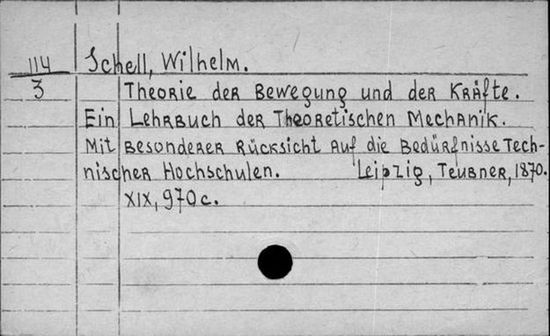 114
3
Schell, Wilhelm.
Theorie der Bewegung und der Kräfte.
Ein Lehrbuch der Theoretischen Mechanik.
Mit besonderer Rücksicht auf die Bedürfnisse Tech-
nischer Hochschulen. Leipzig, Teubner, 1870.
XIX, 970 c.